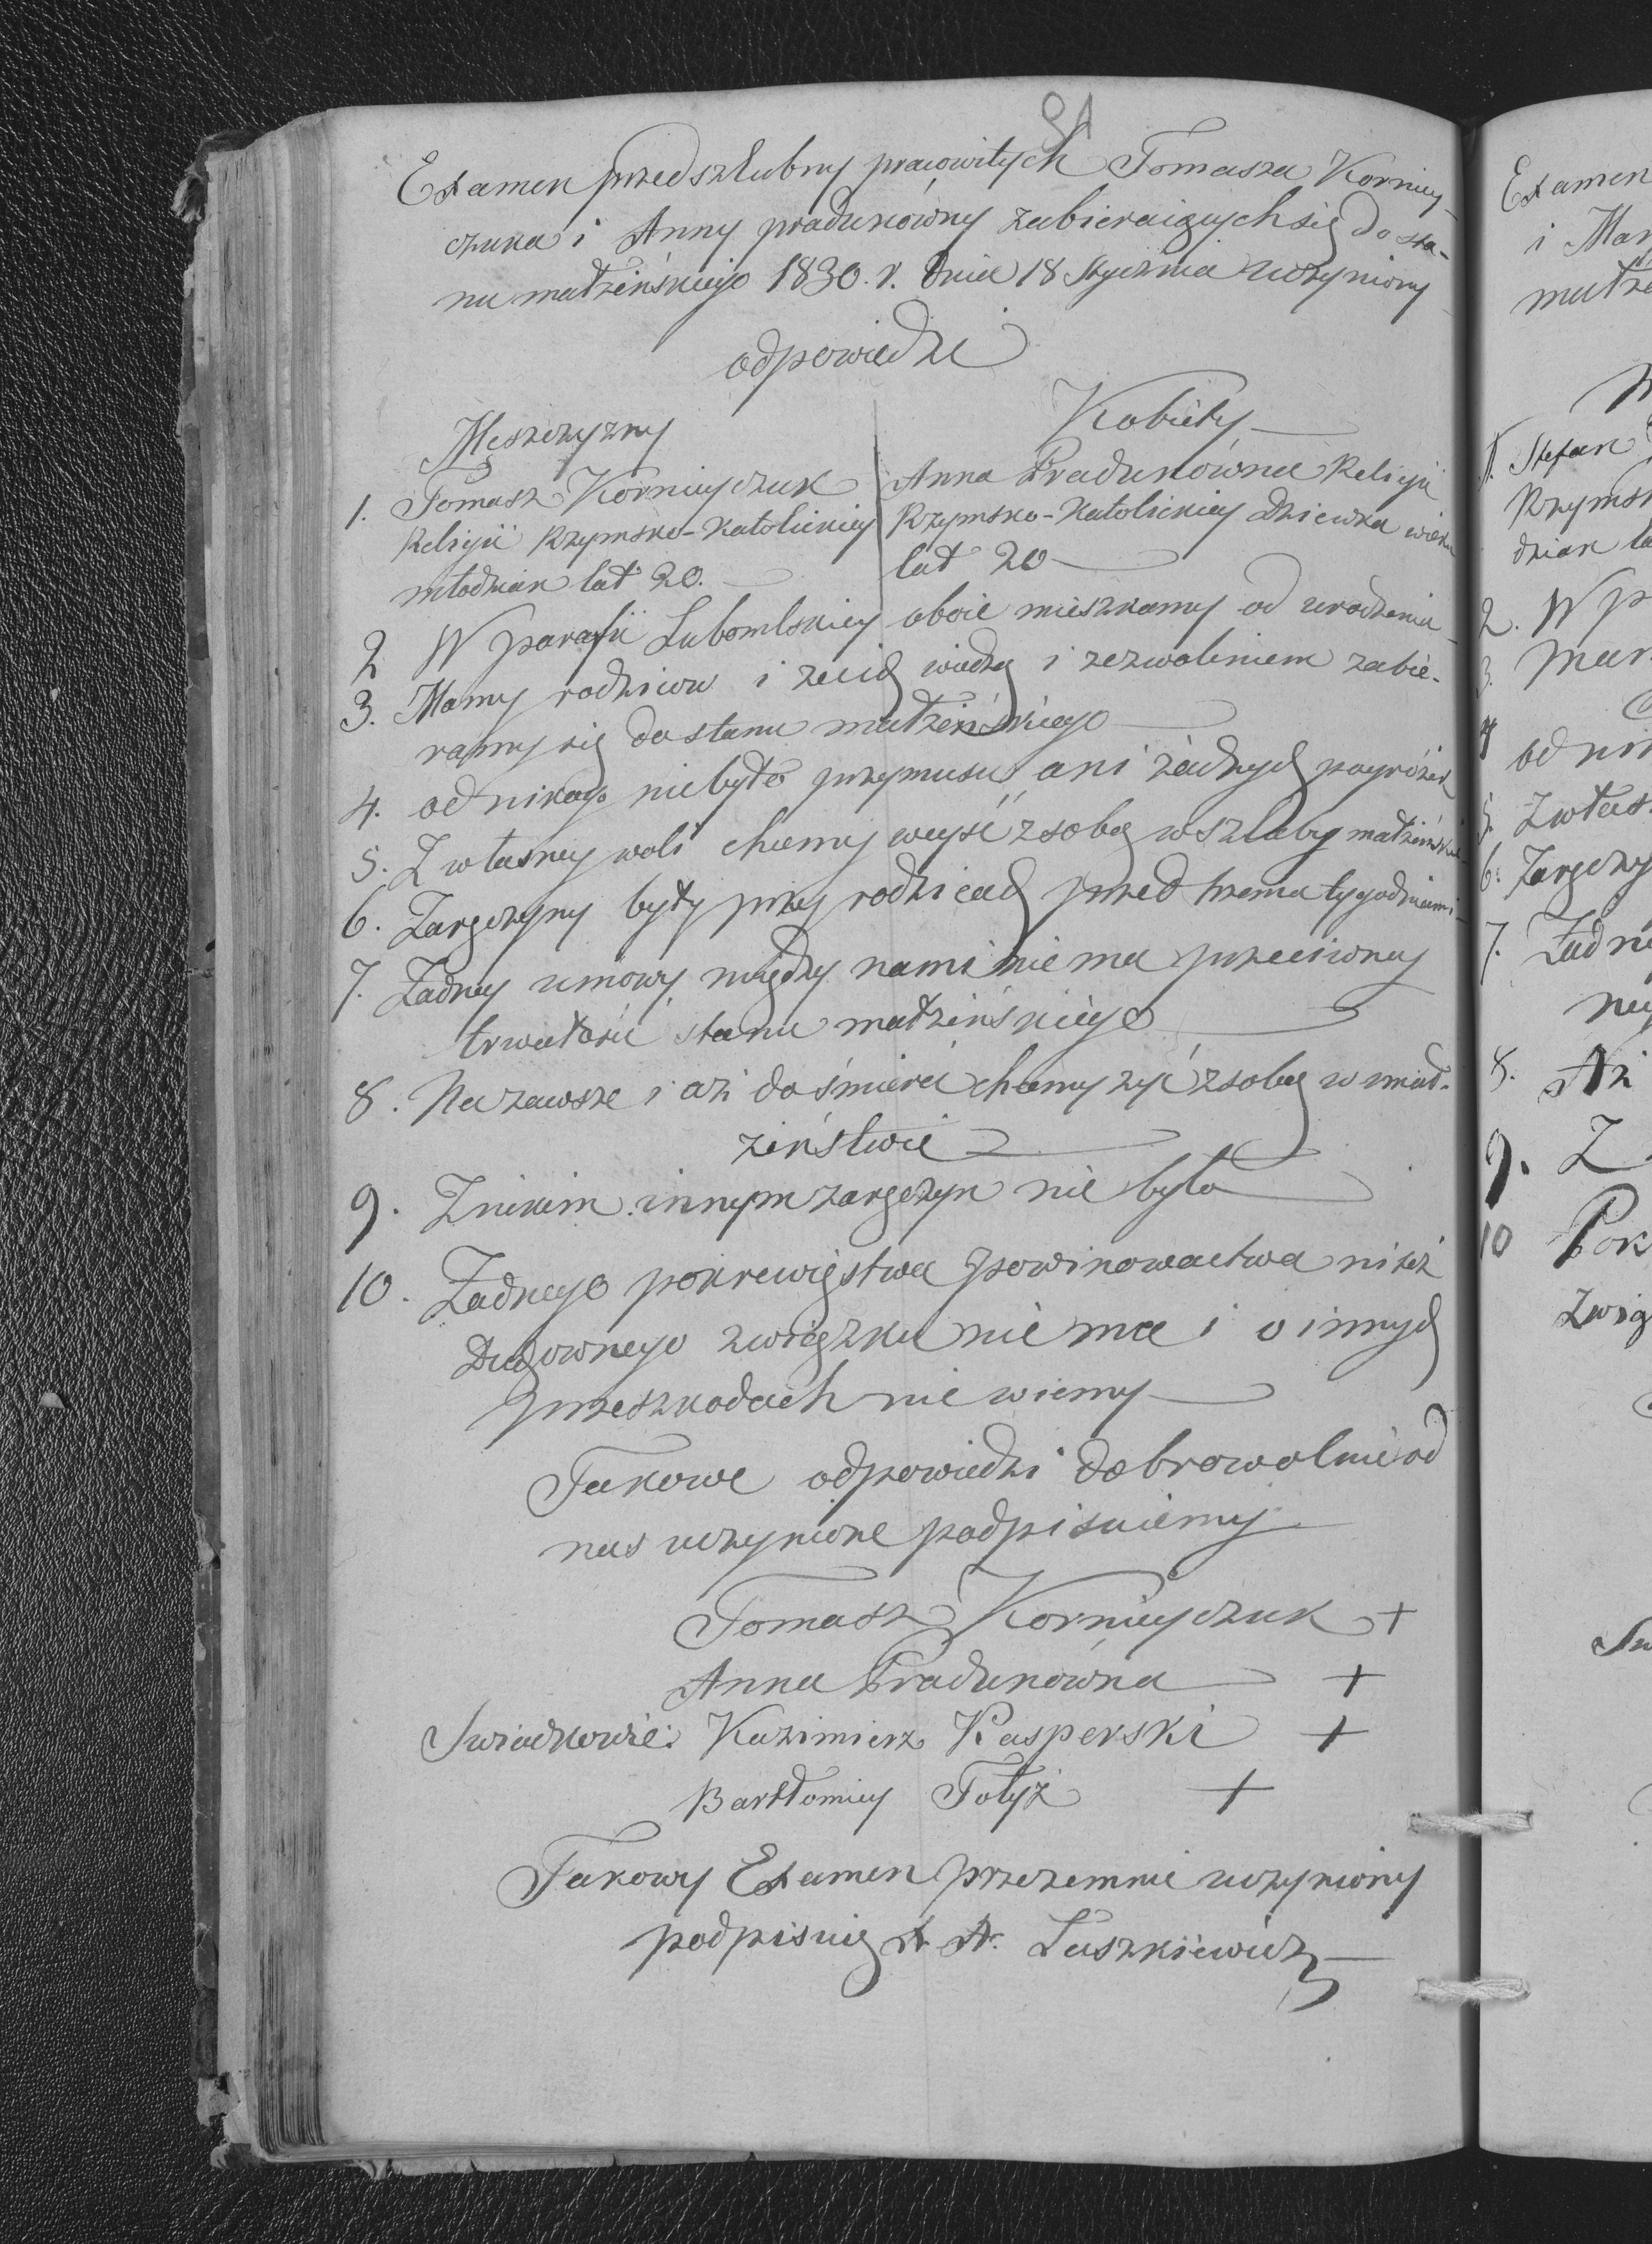 91
Examen przedszlubny pracowitych Tomasza Korniey-
czuka i Anny pradunówny zabieraiących się do sta-
nu małżeńskiego 1830. r. Dnia 18 Stycznia uczyniony
odpowiedzi
Męszczyzny
Kobiety
1. Tomasz Korniyczuk
Religii Rzymsko-Katolickiey
młodzian lat 20.
Anna Pradunówna Religii
Rzymsko-Katolickiey dziewka wieku
lat 20
2 W parafii Lubomlskiey oboie mieszkamy od urodzenia
3. Mamy rodziców i z ich wiedzą i zezwoleniem zabie-
ramy się do stanu małżeńskiego
4. od nikogo niebyło przymusu ani żadnych pogróżek
5. Z własney woli chcemy weyść z sobą w szluby małżeńskie
6. Zaręczyny były przy rodzicach przed trzema tygodniami
7. Żadney umowy między nami nie ma przeciwney
trwałości stanu małżeńskiego
8. Na zawsze i aż do śmierci chcemy zyć z sobą w mał-
żeństwie
9. Znikim innym zaręczyn nie było
10. Żadnego pokrewięstwa powinowactwa niteż
Duchownego związku nie ma i o innych
przeszkodach nie wiemy
Takowe odpowiedzi dobrowolnie od
nas uczynione podpisuiemy
Tomasz Korniyczuk +
Anna Pradunówna +
Swiadkowie: Kazimierz Kasperski +
Bartłomiey Tołyż +
Takowy Examen przezemnie uczyniony
podpisuię X A. Laszkiewicz
Examen
i Mar
małże
1. Stefan
Rzyms
dzian la
2. W p
3. Mar
4 od nik
5. Z włas
6. Zaręczy
7. Żadne
ney
8. Aż
9. Z
10 Pok
zwią